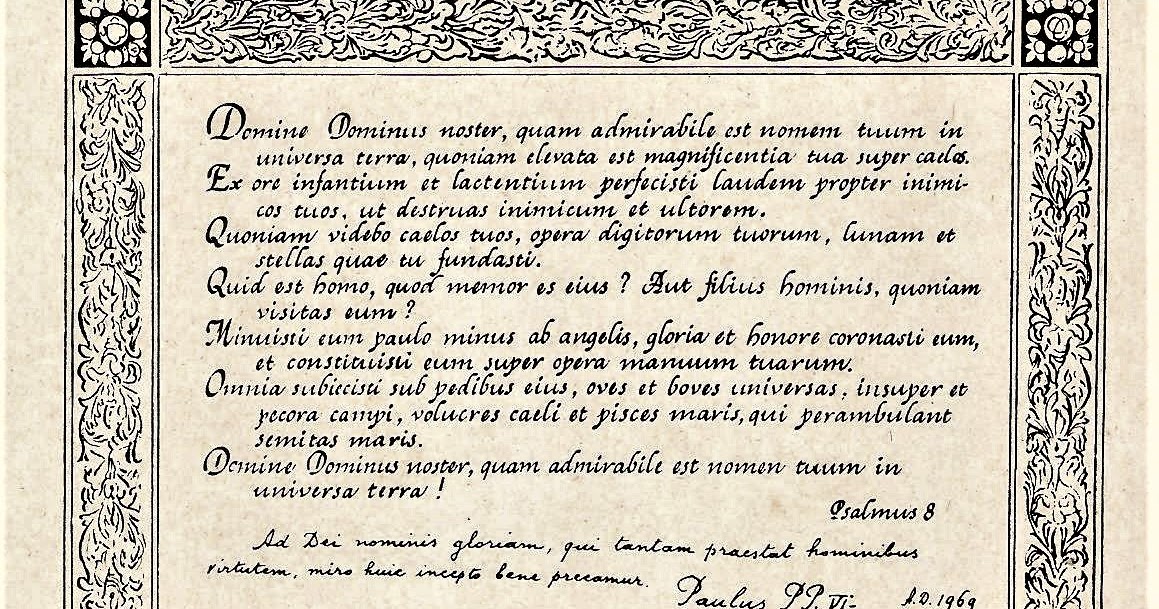 Domine Dominus noster, quam admirabile est nomem tuum in
universa terra, quoniam elevata est magnificentia tua super caelos.
Ex ore infantium et lactentium perfecisti laudem propter inimi-
cos tuos, ut destruas inimicum et ultorem.
Quoniam videbo caelos tuos, opera digitorum tuorum, lunam et
stellas quae tu fundasti.
Quid est homo, quod memor es eius? Aut filius hominis, quoniam
visitas eum?
Minuisti eum paulo minus ab angelis, gloria et honore coronasti eum,
et constituisti eum super opera manuum tuarum.
Omnia subiecisti sub pedibus eius, oves et boves universas, insuper et
pecora campi, volucres caeli et pisces maris, qui perambulant
semitas maris.
Domine Dominus noster, quam admirabile est nomen tuum in
universa terra!
Psalmus 8
Ad Dei nominis gloriam, qui tantam praestat hominibus
virtutem, miro huic incepto bene precamur.
Paulus PP. VI- A.D. 1969